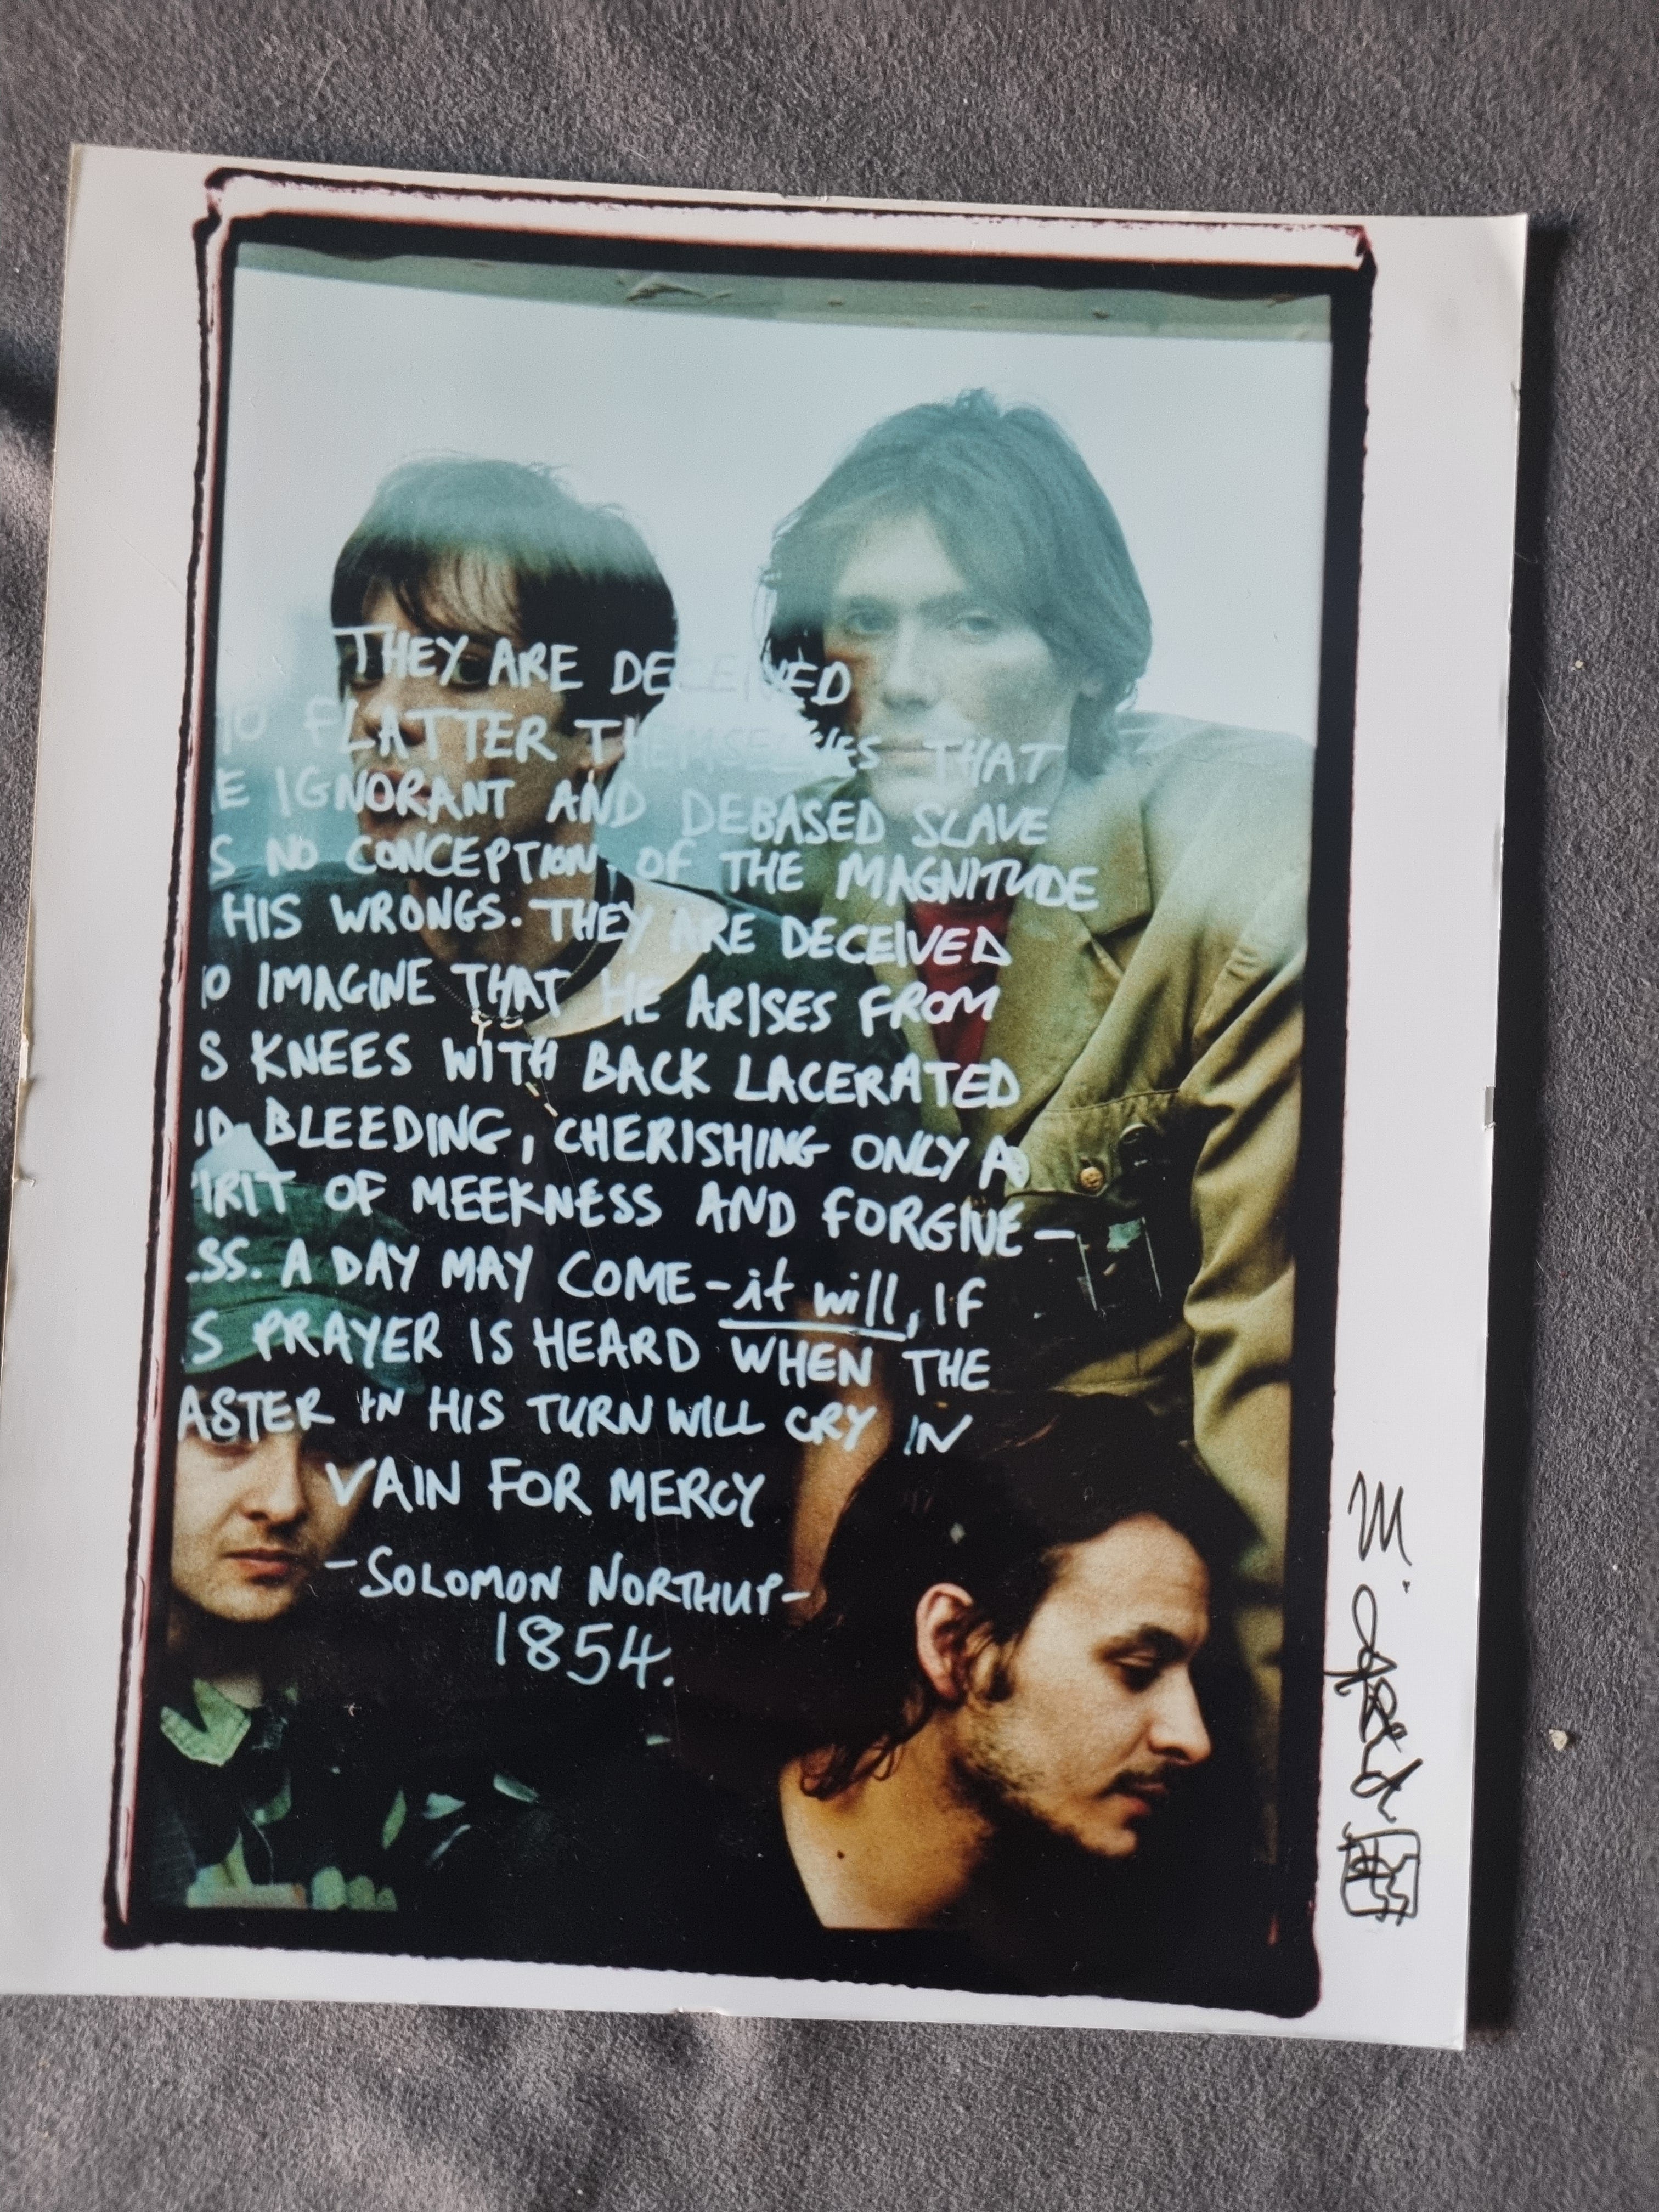 THEY ARE DECEIVED
FLATTER THEMSELVES THAT
E IGNORANT AND DEBASED SLAVE
S NO CONCEPTION OF THE MAGNITUDE
HIS WRONGS. THEY ARE DECEIVED
O IMAGINE THAT HE ARISES FROM
S KNEES WITH BACK LACERATED
D BLEEDING, CHERISHING ONLY A
IRIT OF MEEKNESS AND FORGIVE-
SS. A DAY MAY COME - it will, IF
S PRAYER IS HEARD WHEN THE
ASTER IN HIS TURN WILL CRY IN
VAIN FOR MERCY
- SOLOMON NORTHUP -
1854.